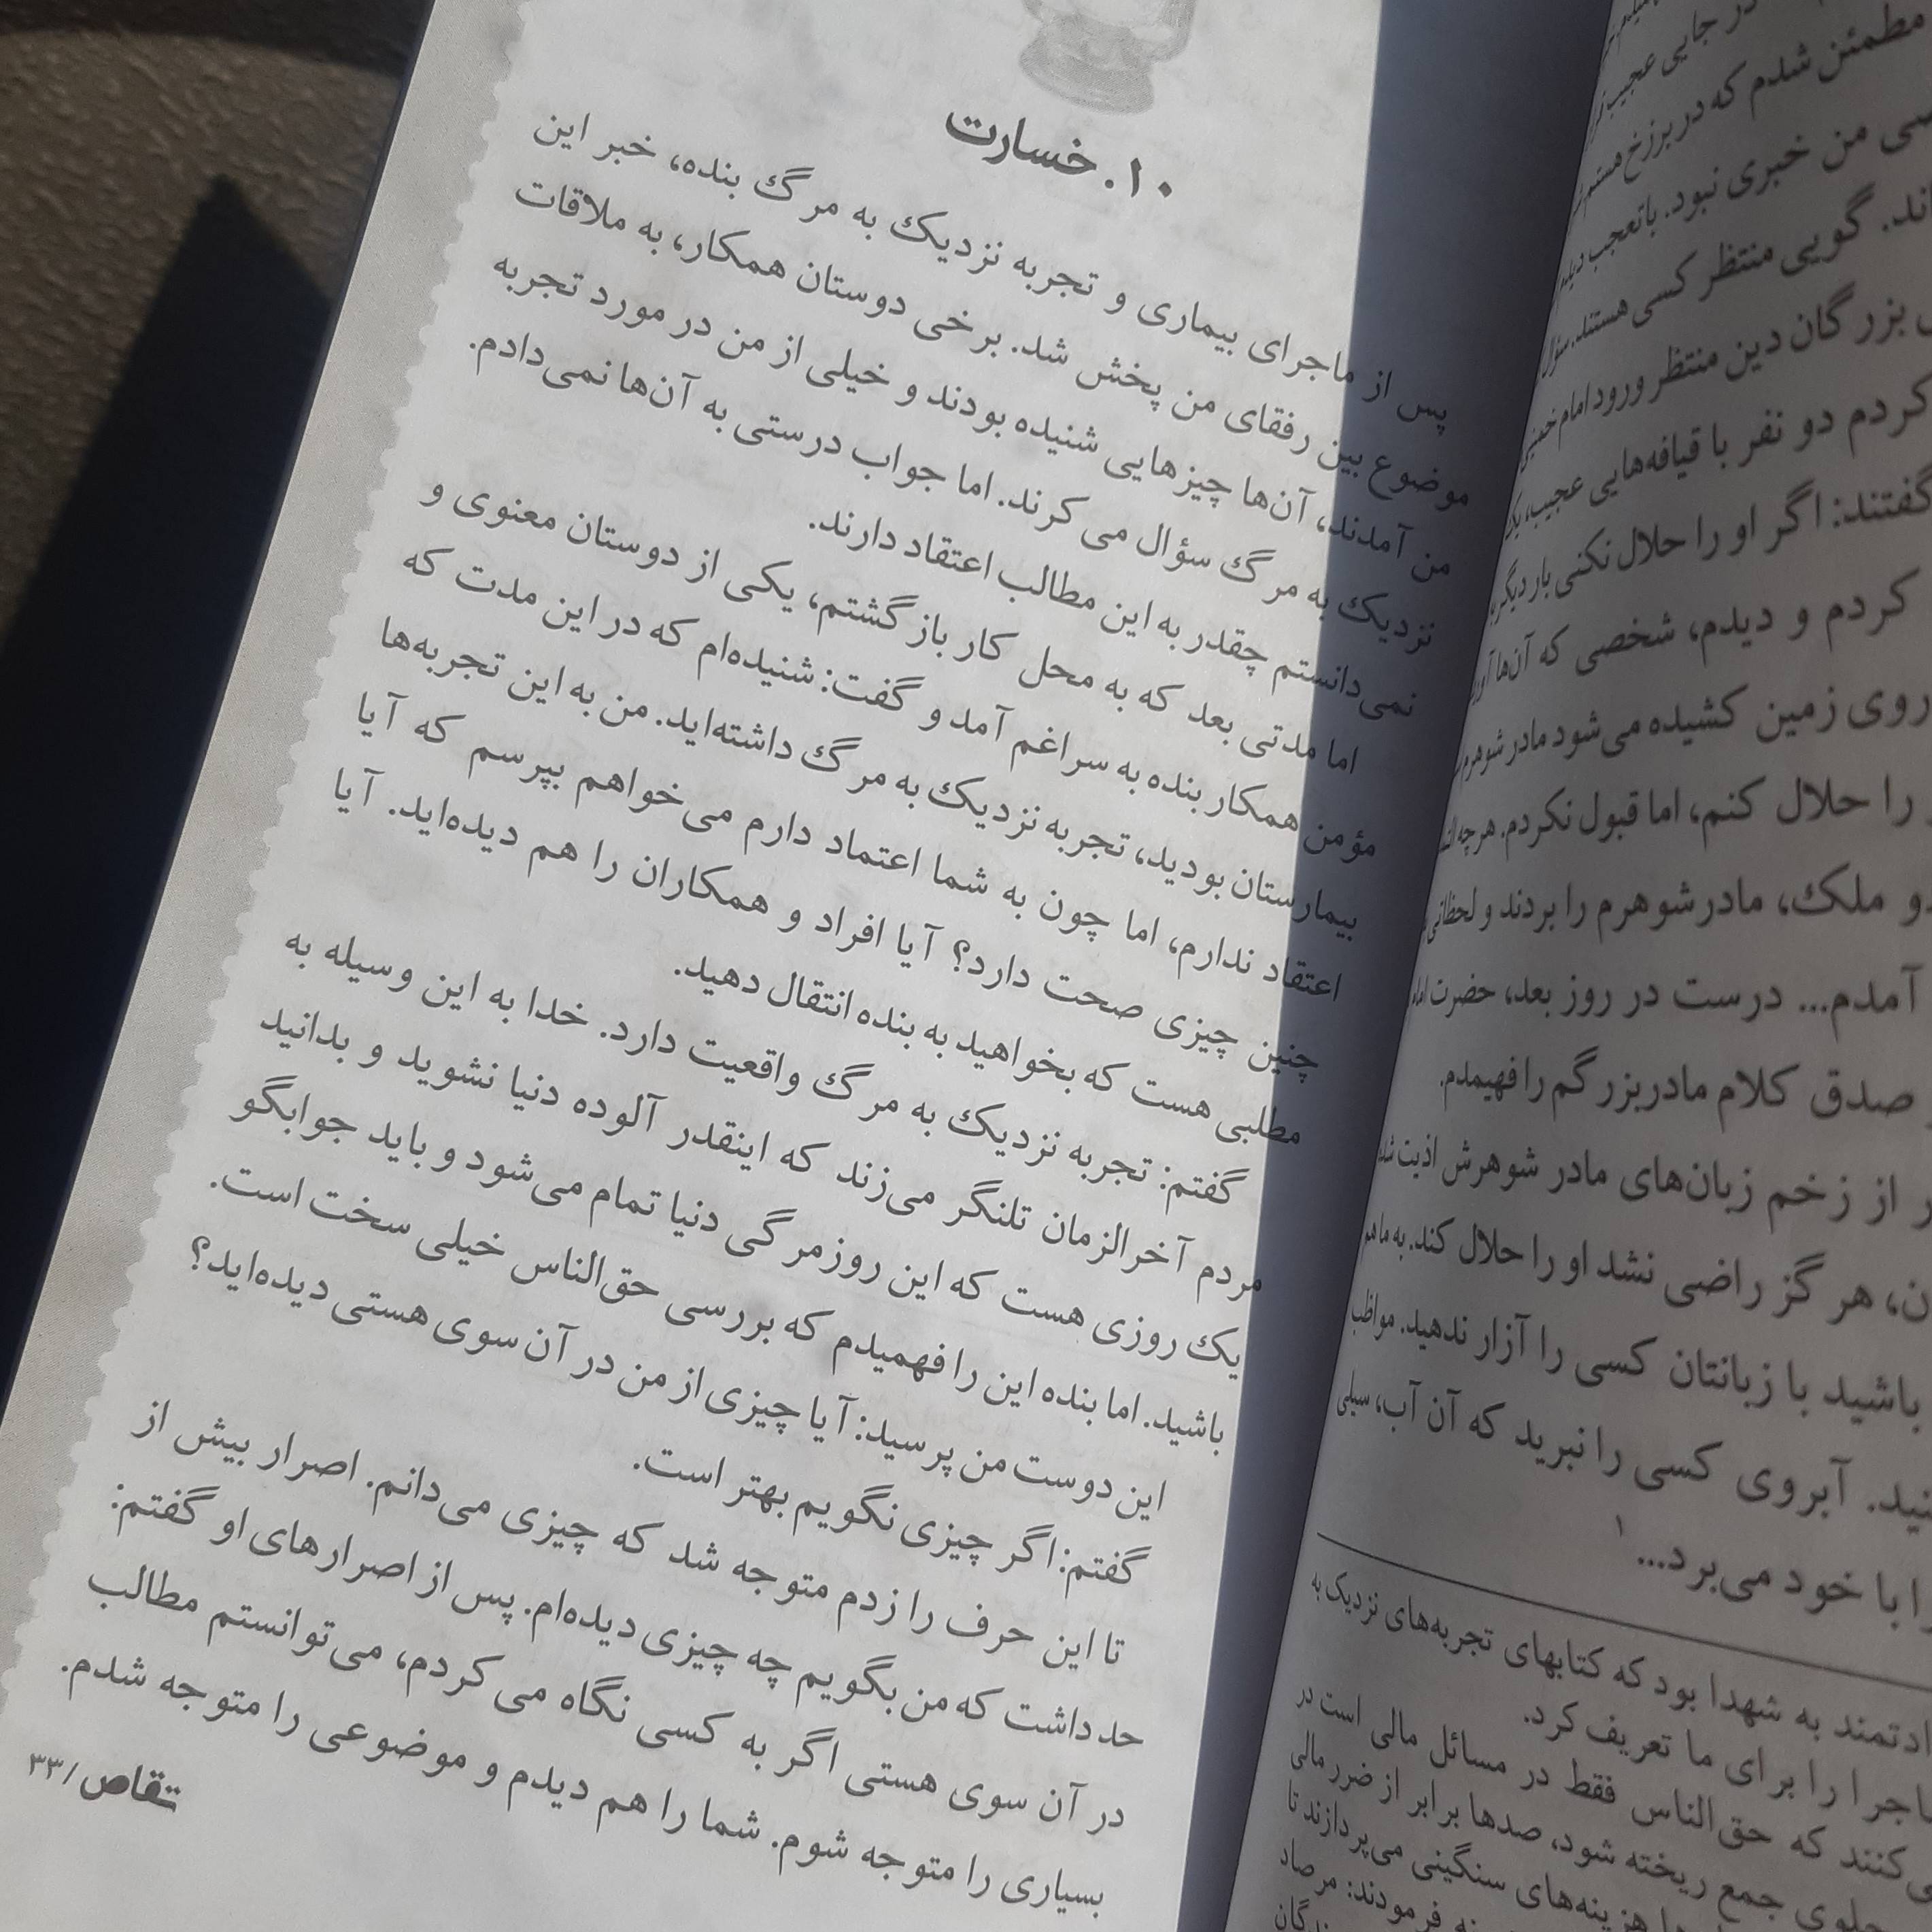 ۱۰. خسارت
پس از ماجرای بیماری و تجربه نزدیک به مرگ بنده، خبر این
موضوع بین رفقای من پخش شد. برخی دوستان همکار، به ملاقات
من آمدند، آن‌ها چیزهایی شنیده بودند و خیلی از من در مورد تجربه
نزدیک به مرگ سؤال می کرند. اما جواب درستی به آن‌ها نمی‌دادم.
نمی‌دانستم چقدر به این مطالب اعتقاد دارند.
اما مدتی بعد که به محل کار بازگشتم، یکی از دوستان معنوی و
مؤمن همکار بنده به سراغم آمد و گفت: شنیده‌ام که در این مدت که
بیمارستان بودید، تجربه نزدیک به مرگ داشته‌اید. من به این تجربه‌ها
اعتقاد ندارم، اما چون به شما اعتماد دارم می‌خواهم بپرسم که آیا
چنین چیزی صحت دارد؟ آیا افراد و همکاران را هم دیده‌اید. آیا
مطلبی هست که بخواهید به بنده انتقال دهید.
گفتم: تجربه نزدیک به مرگ واقعیت دارد. خدا به این وسیله به
مردم آخرالزمان تلنگر می‌زند که اینقدر آلوده دنیا نشوید و بدانید
یک روزی هست که این روزمرگی دنیا تمام می‌شود و باید جوابگو
باشید. اما بنده این را فهمیدم که بررسی حق‌الناس خیلی سخت است.
این دوست من پرسید: آیا چیزی از من در آن سوی هستی دیده‌اید؟
گفتم: اگر چیزی نگویم بهتر است.
تا این حرف را زدم متوجه شد که چیزی می‌دانم. اصرار بیش از
حد داشت که من بگویم چه چیزی دیده‌ام. پس از اصرارهای او گفتم:
در آن سوی هستی اگر به کسی نگاه می کردم، می‌توانستم مطالب
بسیاری را متوجه شوم. شما را هم دیدم و موضوعی را متوجه شدم.
تقاص/۳۳
در جایی عجیب
مطمئن شدم که در برزخ هستم
من خبری نبود. باتعجب دیدم
گویی منتظر کسی هستند. سؤال
بزرگان دین منتظر ورود امام خمینی
کردم دو نفر با قیافه‌هایی عجیب، یک
گفتند: اگر او را حلال نکنی بار دیگر
کردم و دیدم، شخصی که آن‌ها
روی زمین کشیده می‌شود مادرشوهرم
را حلال کنم، اما قبول نکردم. هرچه
دو ملک، مادرشوهرم را بردند و لحظاتی
آمدم... درست در روز بعد، حضرت امام
صدق کلام مادربزرگم را فهمیدم.
از زخم زبان‌های مادر شوهرش اذیت شد
هرگز راضی نشد او را حلال کند. به ما هم
باشید با زبانتان کسی را آزار ندهید. مواظب
آبروی کسی را نبرید که آن آب، سیلی
با خود می‌برد... ۱
به شهدا بود که کتابهای تجربه‌های نزدیک به
را برای ما تعریف کرد.
که حق‌الناس فقط در مسائل مالی است در
جمع ریخته شود، صدها برابر از ضرر مالی
هزینه‌های سنگینی می‌پردازند تا
فرمودند: مرصاد